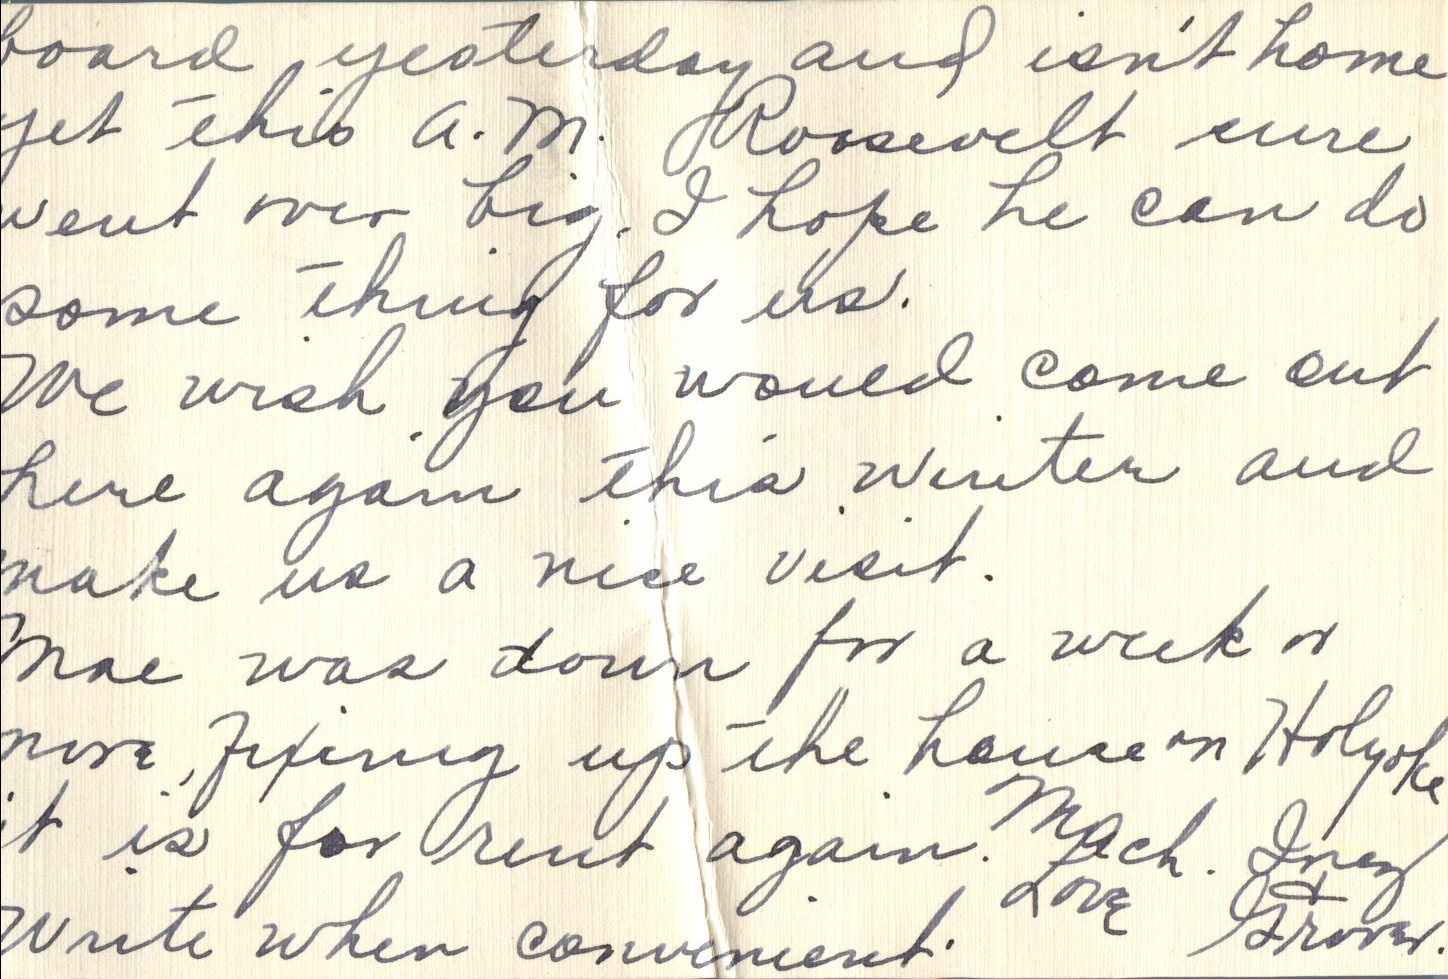 board yesterday and isn't home
yet this A.M. Roosevelt sure
went over big. I hope he can do
some thing for us.
We wish you would come out
here again this winter and
make us a nice visit.
Mae was down for a week or
more, fixing up the house on Holyoke
it is for rent again. Much. Inez
Love &
Write when convenient. Grover.